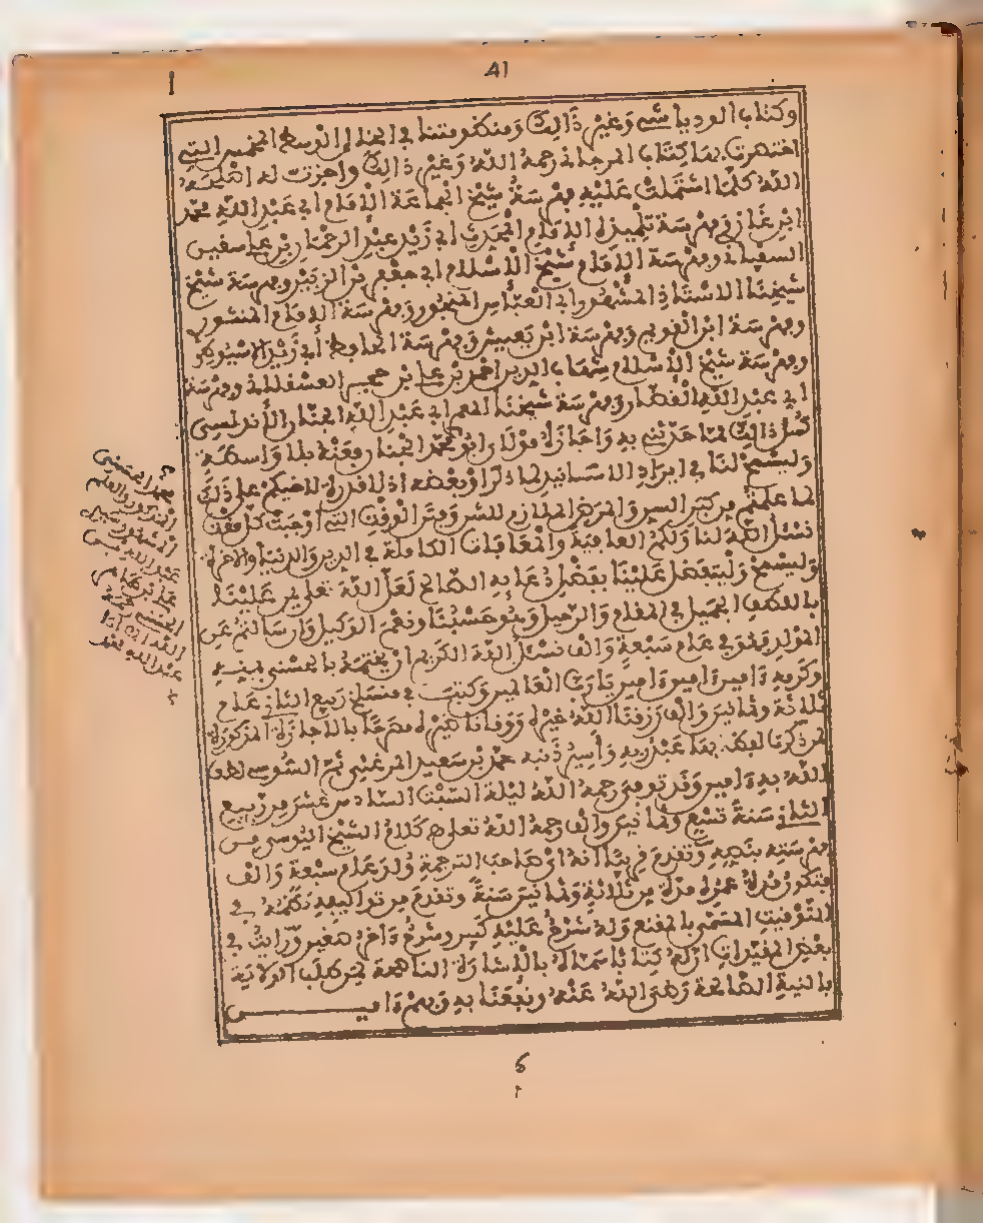 ٨١
وكتاب الوديا شيى وغير ذالك ومنظومتنا في الخالي الوسط المخمس التي
اختصرت بها كتاب المرجاني رحمه الله وغير ذالك واجزت له اصلحه
الله كلما اشتملت عليه فهرسة شيخ الجماعة الامام ابي عبد الله محمد
ابن غازي وفهرسة تلميذه الامام المحدث ابي زيد عبد الرحمن بن علي سفين
السفياني وفهرسة الامام شيخ الاسلام ابي جعفر بن الزبير وفهرسة شيخ
شيخنا الاستاذ المشهور ابي العباس المنجور وفهرسة الامام المنشوري
وفهرسة ابن الفويم وفهرسة ابن يعيش وفهرسة الحافظ أبي زيد الاسيوطي
وفهرسة شيخ الاسلام شهاب الدين احمد بن علي بن حجر العسقلاني وفهرسة
ابي عبد الله القصار وفهرسة شيخنا المعمر ابي عبد الله الجنان الأندلسي
كل ذالك مما حدثني به واجازه مولاي ابو محمد الجنان بعضه بلا واسطة
وليسمح لنا في ايراد الاسانيد لما ذكر او بعضه اذ لا قدرة لضيكم على ذلك
لما علمتم من كبر السن والمرض الملازم للسر وفتر الوقت التي اوجبت كل
نسئل الله لنا ولكم العافية والمعافات الكاملة في الدين والدنيا والاخرة
وليسمح وليتفضل علينا بفضل دعايه الصالح لعل الله تعلى يمن علينا
باللطف الجميل في المقام والرحيل وهو حسبنا ونعم الوكيل وارسالتم عن
المولد فهو في عام سبعة والف نسئل الله الكريم ان يختمه بالحسنى بمنه
وكرمه ءامين ءامين ءامين يارب العالمين وكتبت في منسلخ ربيع الثاني عام
ثلاثة وثمانين والف رزقنا الله خيره ووقانا ضيره مصرحا بالاجازة المذكورة
لمن ذكر بها لفظه بها عبد ربه وأسير ذنبه محمد بن سعيد المرغيثي ثم السوسي لطف
الله به ءامين وقد توفي رحمه الله ليلة السبت السادس عشر من ربيع
الثاني سنة تسع وثمانين والف رحمه الله تعلى كلام الشيخ اليوسي في
فهرسته بنصه وتقدم قريبا انه اي صاحب الترجمة ولد عام سبعة والف
فتكون مدة عمره مدة من ثلاثة وثمانين سنة وتقدم من تواليفه نظمه في
التوقيت المسمى بالمقنع وله شرح عليه كبير وشرح ءاخر صغير ورايت في
بعض المقيدات ان له كتابا سماه بالاشارة الناصحة لمن طلب الولاية
بالنية الصالحة رضي الله عنه ونفعنا به وبهم ءامين
محمد
المذكور والعلم
المشهور سيدي
عبد الله بن
علي بن طاهر
الحسني رحمه
الله
عبد الله محمد
6